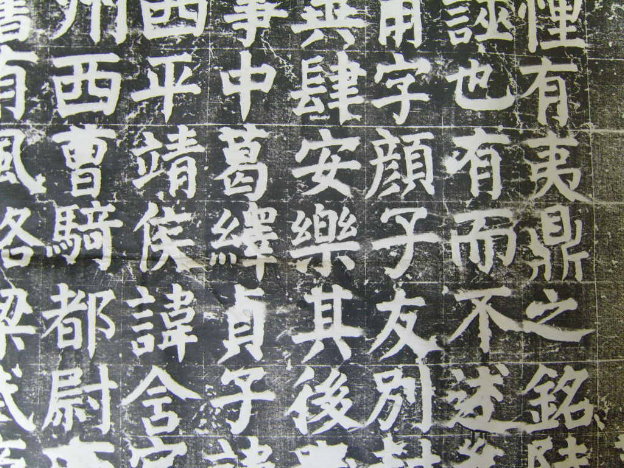 悝有夷鼎之銘陸
誣也有而不述
甫字顏子友別封
肆安樂其後
事中葛繹貞子諱
西平靖侯諱含
州西曹騎都尉
有風格梁武